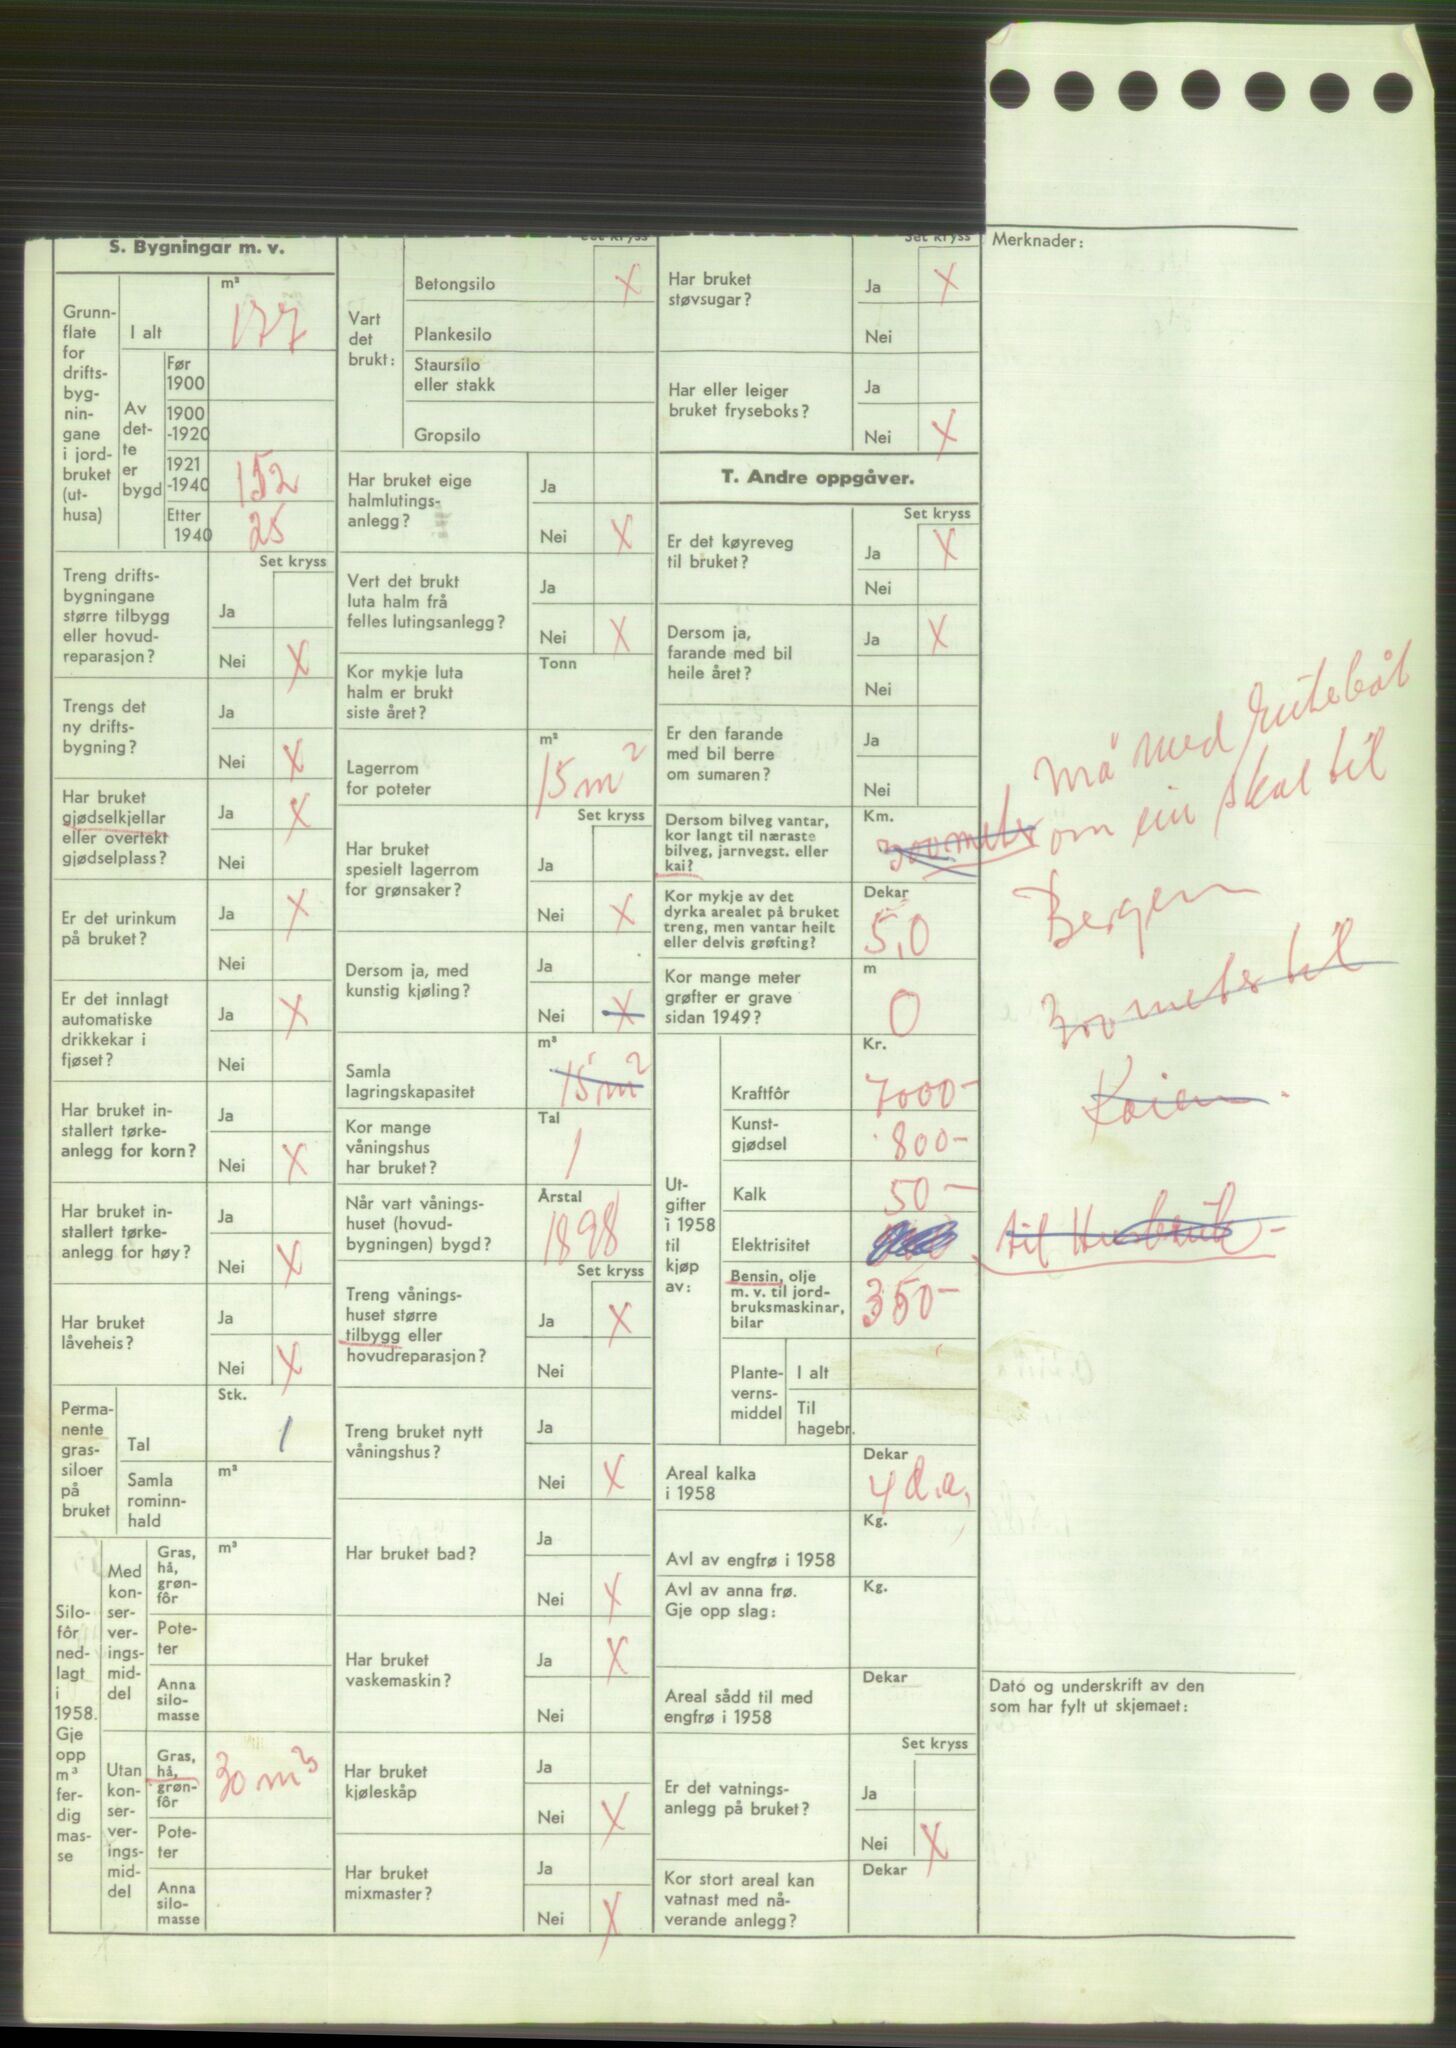 S. Bygningar m. v.
Grunn-
flate
for
drifts-
byg-
nin-
gane
i jord-
bruket
(ut-
husa)
I alt
m²
177
Av
det-
te
er
bygd
Før
1900
1900
-1920
1921
-1940
152
Etter
1940
25
Set kryss
Treng drifts-
bygningane
større tilbygg
eller hovud-
reparasjon?
Ja
Nei X
Trengs det
ny drifts-
bygning?
Ja
Nei X
Har bruket
gjødselkjellar
eller overtekt
gjødselplass?
Ja X
Nei
Er det urinkum
på bruket?
Ja X
Nei
Er det innlagt
automatiske
drikkekar i
fjøset?
Ja X
Nei
Har bruket in-
stallert tørke-
anlegg for korn?
Ja
Nei X
Har bruket in-
stallert tørke-
anlegg for høy?
Ja
Nei X
Har bruket
låveheis?
Ja
Nei X
Perma-
nente
gras-
siloer
på
bruket
Stk.
Tal 1
Samla
rominn-
hald
m³
Silo-
fôr
ned-
lagt
i
1958.
Gje
opp
m³
fer-
dig
mas-
se
Med
kon-
ser-
ver-
ings-
mid-
del
Gras,
hå,
grøn-
fôr
m³
Pote-
ter
Anna
silo-
masse
Utan
kon-
ser-
ver-
ings-
mid-
del
Gras,
hå,
grøn-
fôr
30 m³
Pote-
ter
Anna
silo-
masse
Set kryss
Vart
det
brukt:
Betongsilo X
Plankesilo
Staursilo
eller stakk
Gropsilo
Har bruket eige
halmlutings-
anlegg?
Ja
Nei X
Vert det brukt
luta halm frå
felles lutingsanlegg?
Ja
Nei X
Kor mykje luta
halm er brukt
siste året?
Tonn
Lagerrom
for poteter
m²
15 m²
Set kryss
Har bruket
spesielt lagerrom
for grønsaker?
Ja
Nei X
Dersom ja, med
kunstig kjøling?
Ja
Nei X
Samla
lagringskapasitet
m²
15 m²
Kor mange
våningshus
har bruket?
Tal
1
Når vart vånings-
huset (hovud-
bygningen) bygd?
Årstal
1898
Set kryss
Treng vånings-
huset større
tilbygg eller
hovudreparasjon?
Ja X
Nei
Treng bruket nytt
våningshus?
Ja
Nei X
Har bruket bad?
Ja
Nei X
Har bruket
vaskemaskin?
Ja X
Nei
Har bruket
kjøleskåp
Ja
Nei X
Har bruket
mixmaster?
Ja
Nei X
Set kryss
Har bruket
støvsugar?
Ja X
Nei
Har eller leiger
bruket fryseboks?
Ja
Nei X
T. Andre oppgåver.
Set kryss
Er det køyreveg
til bruket?
Ja X
Nei
Dersom ja,
farande med bil
heile året?
Ja X
Nei
Er den farande
med bil berre
om sumaren?
Ja
Nei
Dersom bilveg vantar,
kor langt til næraste
bilveg, jarnvegst. eller
kai?
Km.
300 meter
Kor mykje av det
dyrka arealet på bruket
treng, men vantar heilt
eller delvis grøfting?
Dekar
5,0
Kor mange meter
grøfter er grave
sidan 1949?
m
0
Ut-
gifter
i 1958
til
kjøp
av:
Kr.
Kraftfôr 7000-
Kunst-
gjødsel 800-
Kalk 50-
Elektrisitet
Bensin, olje
m. v. til jord-
bruksmaskinar,
bilar
350-
Plante-
verns-
middel
I alt
Til
hagebr.
Areal kalka
i 1958
Dekar
4 d.a.
Avl av engfrø i 1958
Kg.
Avl av anna frø.
Gje opp slag:
Kg.
Areal sådd til med
engfrø i 1958
Dekar
Set kryss
Er det vatnings-
anlegg på bruket?
Ja
Nei X
Kor stort areal kan
vatnast med nå-
verande anlegg?
Dekar
Merknader:
må med rutebåt
om ein skal til
Bergen
300 meter til
Kaien.
til Husbruk-
Dato og underskrift av den
som har fylt ut skjemaet: